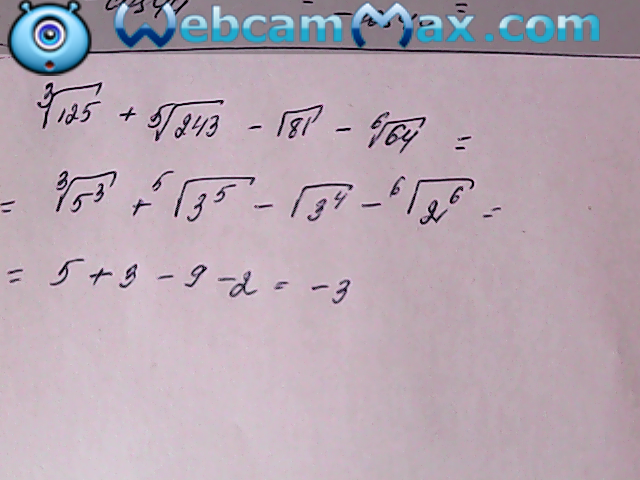 WebcamMax.com
∛125 + ⁵√243 - √81 - ⁶√64 =
= ∛5³ + ⁵√3⁵ - √3⁴ - ⁶√2⁶ =
= 5 + 3 - 9 - 2 = -3